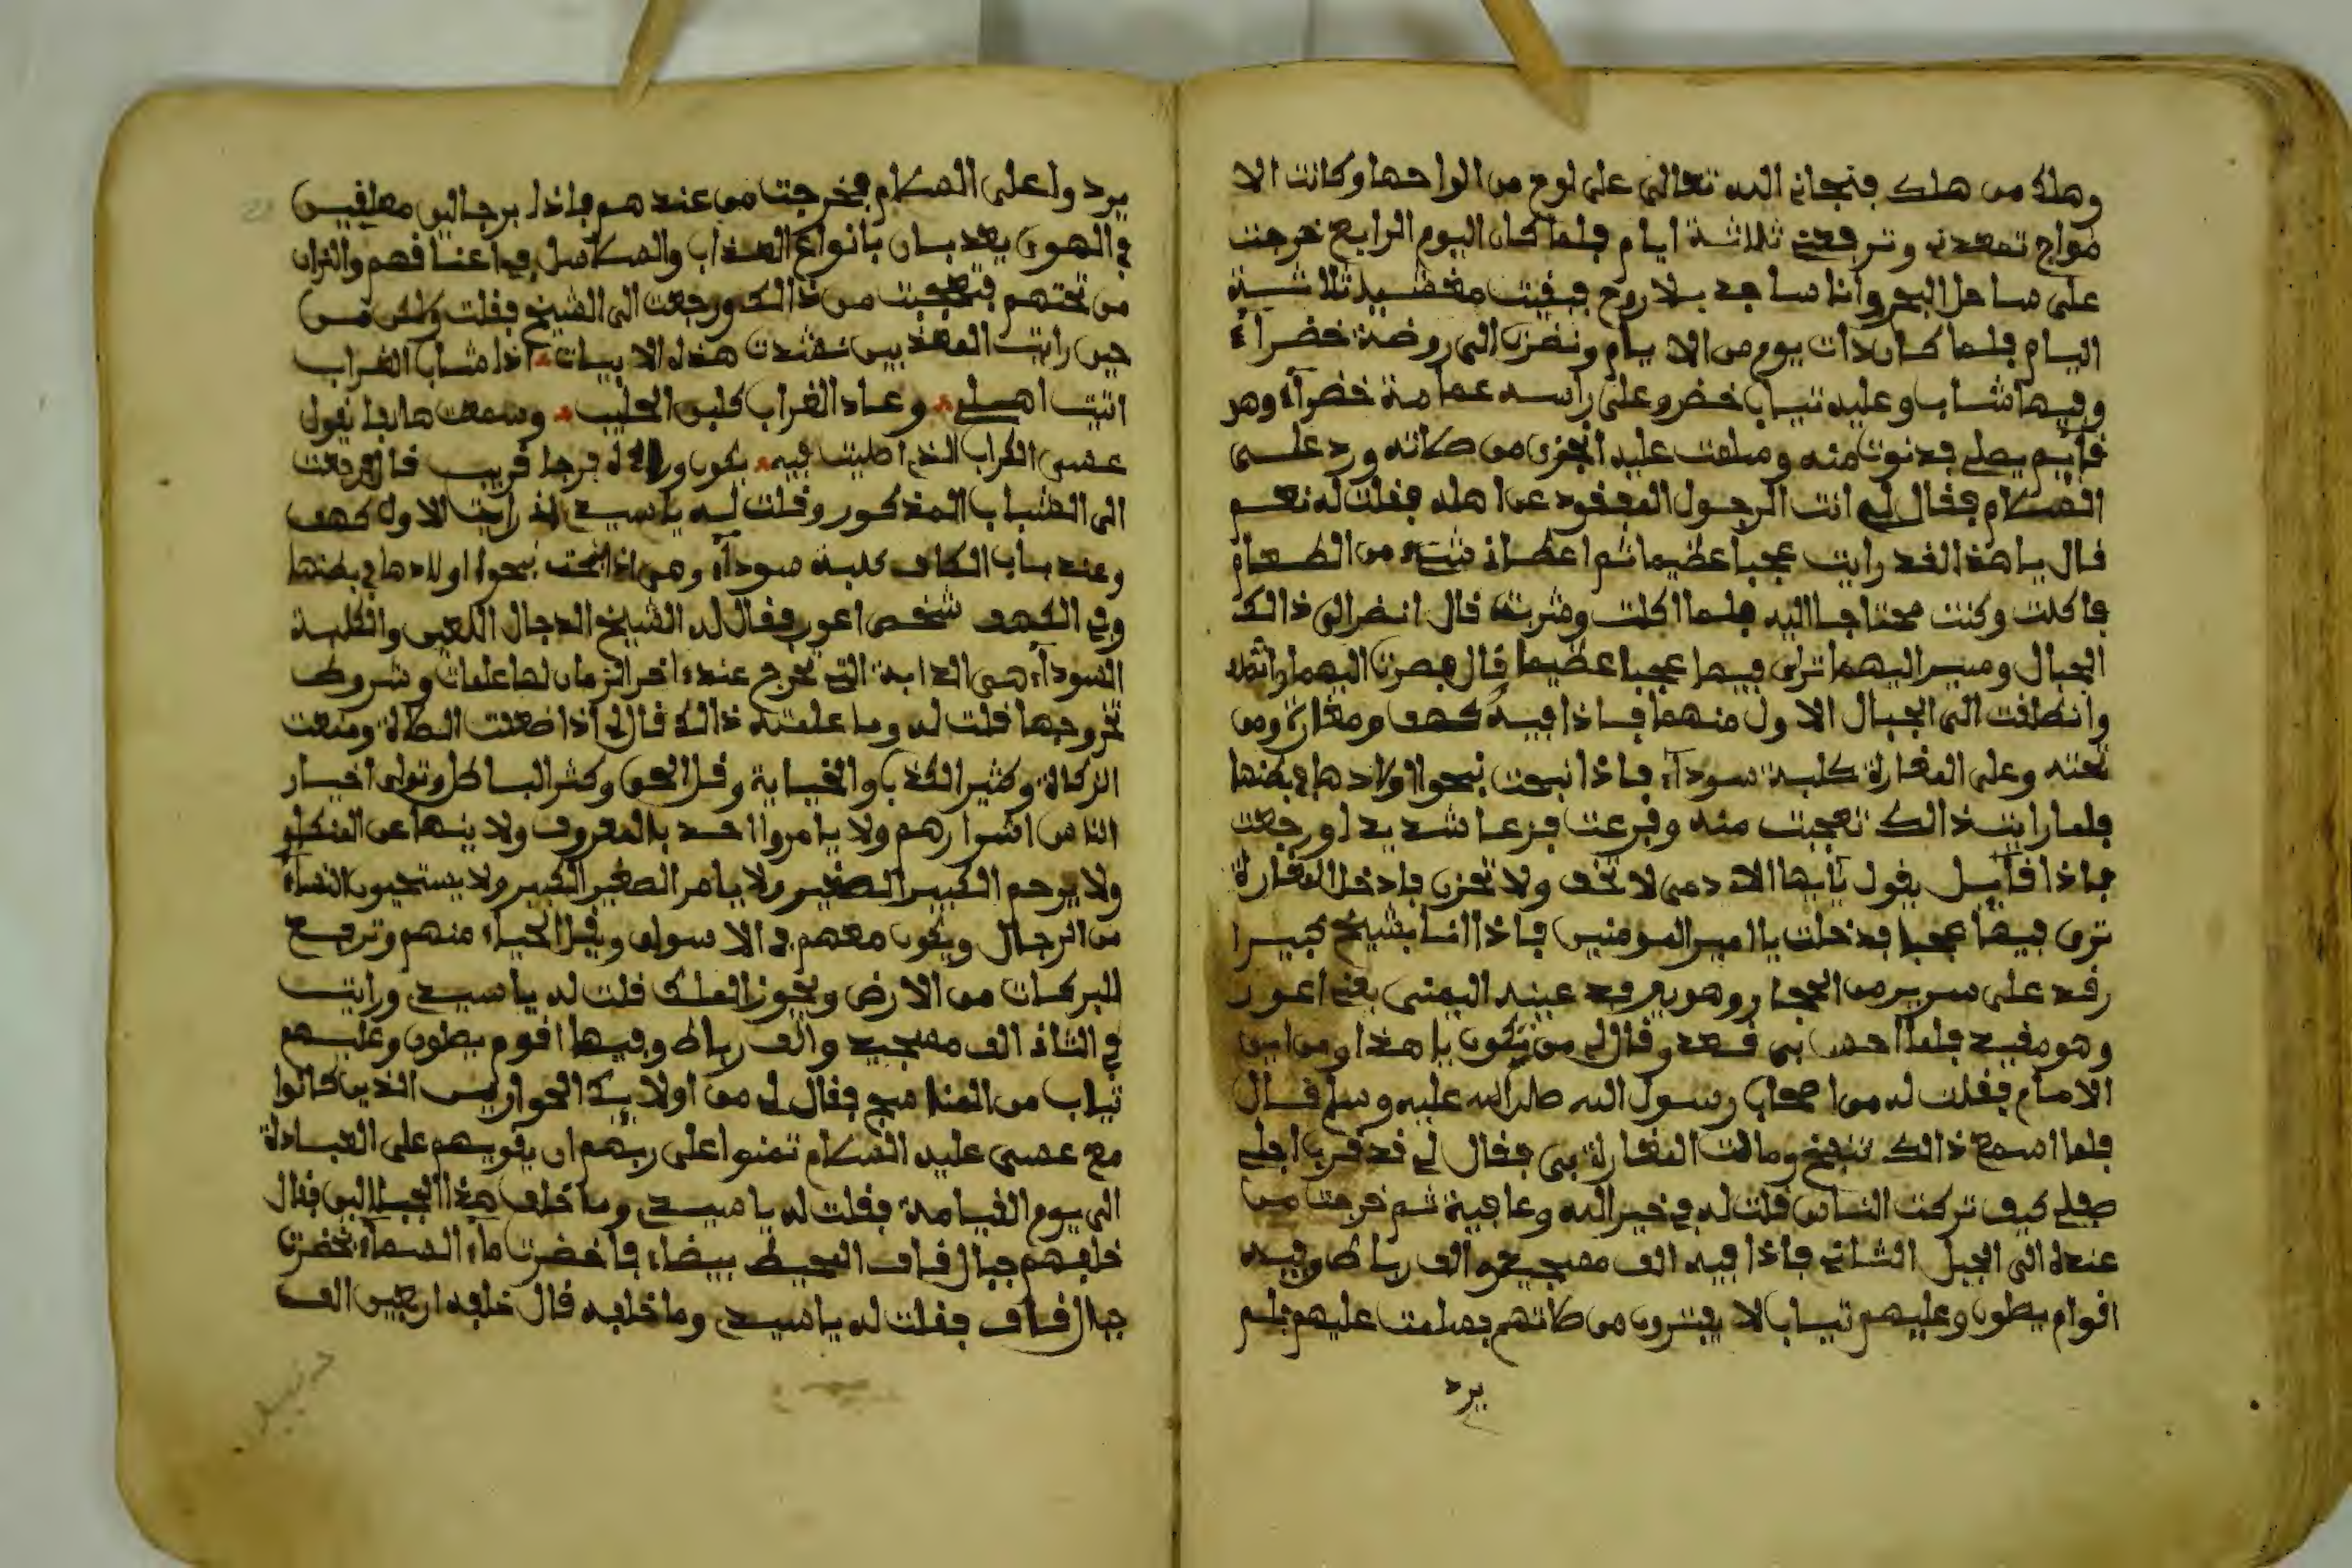 وهلك من هلك فنجاني الله تعالى على لوح من الواحها وكانت الا
مواج تصعدني وترفعني ثلاثة ايام فلما كان اليوم الرابع خرجت
على ساحل البحر وانا ساجد بلا روح فبقيت مغضيد ثلاثة
اليام فلما كان ذات يوم من الايام ونضرت الى روضة خضراء
وفيها شاب وعليه تياب خضر وعلى راسه عمامة خضراء وهو
قايم يصلي فدنوت منه وسلمت عليه انجزى من صلاته ورد على
السلام فقال لي انت الرجول المفقود عن اهله فقلت له نعم
قال يا هذا لقد رايت عجبا عظيما ثم اعطاني شيء من الطعام
فاكلت وكنت محتاجا اليه فلما اكلت وشربت قال انضر الى ذالك
الجبال وسير اليهما ترى فيها عجبا عظيما قال فصرت اليهما
وانطلقت الى الجبال الاول منهما فاذا فيه كهف ومغارة ومن
تحته وعلى المغارة كلبة سوداء فاذا نبحت نبحوا اولادها في بطنها
فلما رايت ذالك تعجبت منه وفزعت فزعا شديدا ورجعت
فاذا قايل يقول يايها الادمي لا تخف ولا تحزن فادخل المغارة
ترى فيها عجبا فدخلت يا امير المومنين فاذا انا بشيخ كبيرا
رقد على سرير من الحجار وهو يعرفد عينه اليمنى يعني اعور
وهو مقيد فلما احس بي قعد وقال لي من تكون يا هذا ومن اين
الامام فقلت له من اصحاب رسول الله صلى الله عليه وسلم قال
فلما اسمع ذالك تنفخ ومالت المغارة بي فقال لي قد قرب اجلي
فلي كيف تركت الناس قلت له في خير الله وعافية ثم خرجت من
عنده الى الجبل الثاني فاذا فيه الف مسجد والف رباط وفيه
اقوام يصلون وعليهم تياب لا يفترون من صلاتهم فسلمت عليهم فلم
يرد
يردوا على السلام فخرجت من عندهم فاذا برجالين معلقين
في الهوى يعذبان بانواع العذاب والسلاسل في اعناقهم والنران
من تحتهم فتعجبت من ذالك ورجعت الى الشيخ فقلت
حين رايت المعذبين نشدت هذه الابيات اذا شاب الغراب
اتيت اهلي وعاد الغراب كلبن الحليب وسمعت هاتفا يقول
عسى الكراب الذي اصليت فيه يكون وراءه فرجا قريب قال فرجعت
الى الشباب المذكور وقلت له يا سيدي اني رايت الاول كهف
وعند باب الكاف كلبة سوداء وهي اذا نبحت نبحوا اولادها في بطنها
وفي الكهف شخص اعور فقال له الشيخ الدجال اللعين والكلبة
السوداء هي الدابة التي تخرج عند اخر الزمان لها علمات وشروط
خروجها قلت له وما علمته ذالك قال لي اذا ضعنت الصلاة ومنعت
الزكاة وكثير الكذب والخياية وقل الحق وكثر الباطل وتولى اخيار
الناس اشوارهم ولا يامروا احد بالمعروف ولا ينها عن المنكر
ولا يرحم الكبير الصغير ولا يامر الصغير الكبير ولا يستحيون النساء
من الرجال ويكون معهم في الاسواق ويقل الحياء منهم وترفع
البركات من الارض ويجوز الملك قلت له يا سيدي ورايت
في الثاني الف مسجد والف رباط وفيها اقوم يصلون وعليهم
تياب من المنامج فقال لي من اولايك الحواريين الذين كانوا
مع عسى عليه السلام تمنوا على ربهم ان يقويهم على العبادة
الى يوم القيامة فقلت له يا سيدي وما خلف هذا الجبالين فقال
خلفهم جبال قاف المحيط بيضاء فاخضرت ماء السماء نخضرت
جبال قاف فقلت له يا سيدي وما خلفه قال خلفه اربعين الف